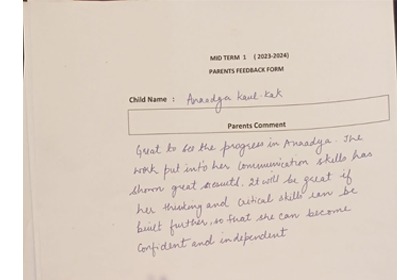 MID TERM 1 (2023-2024)
PARENTS FEEDBACK FORM
Child Name : Anaadya Kaul-Kak
Parents Comment
Great to see the progress in Anaadya. The
work put into her communication skills has
shown great results. It will be great if
her thinking and critical skills can be
built further, so that she can become
confident and independent